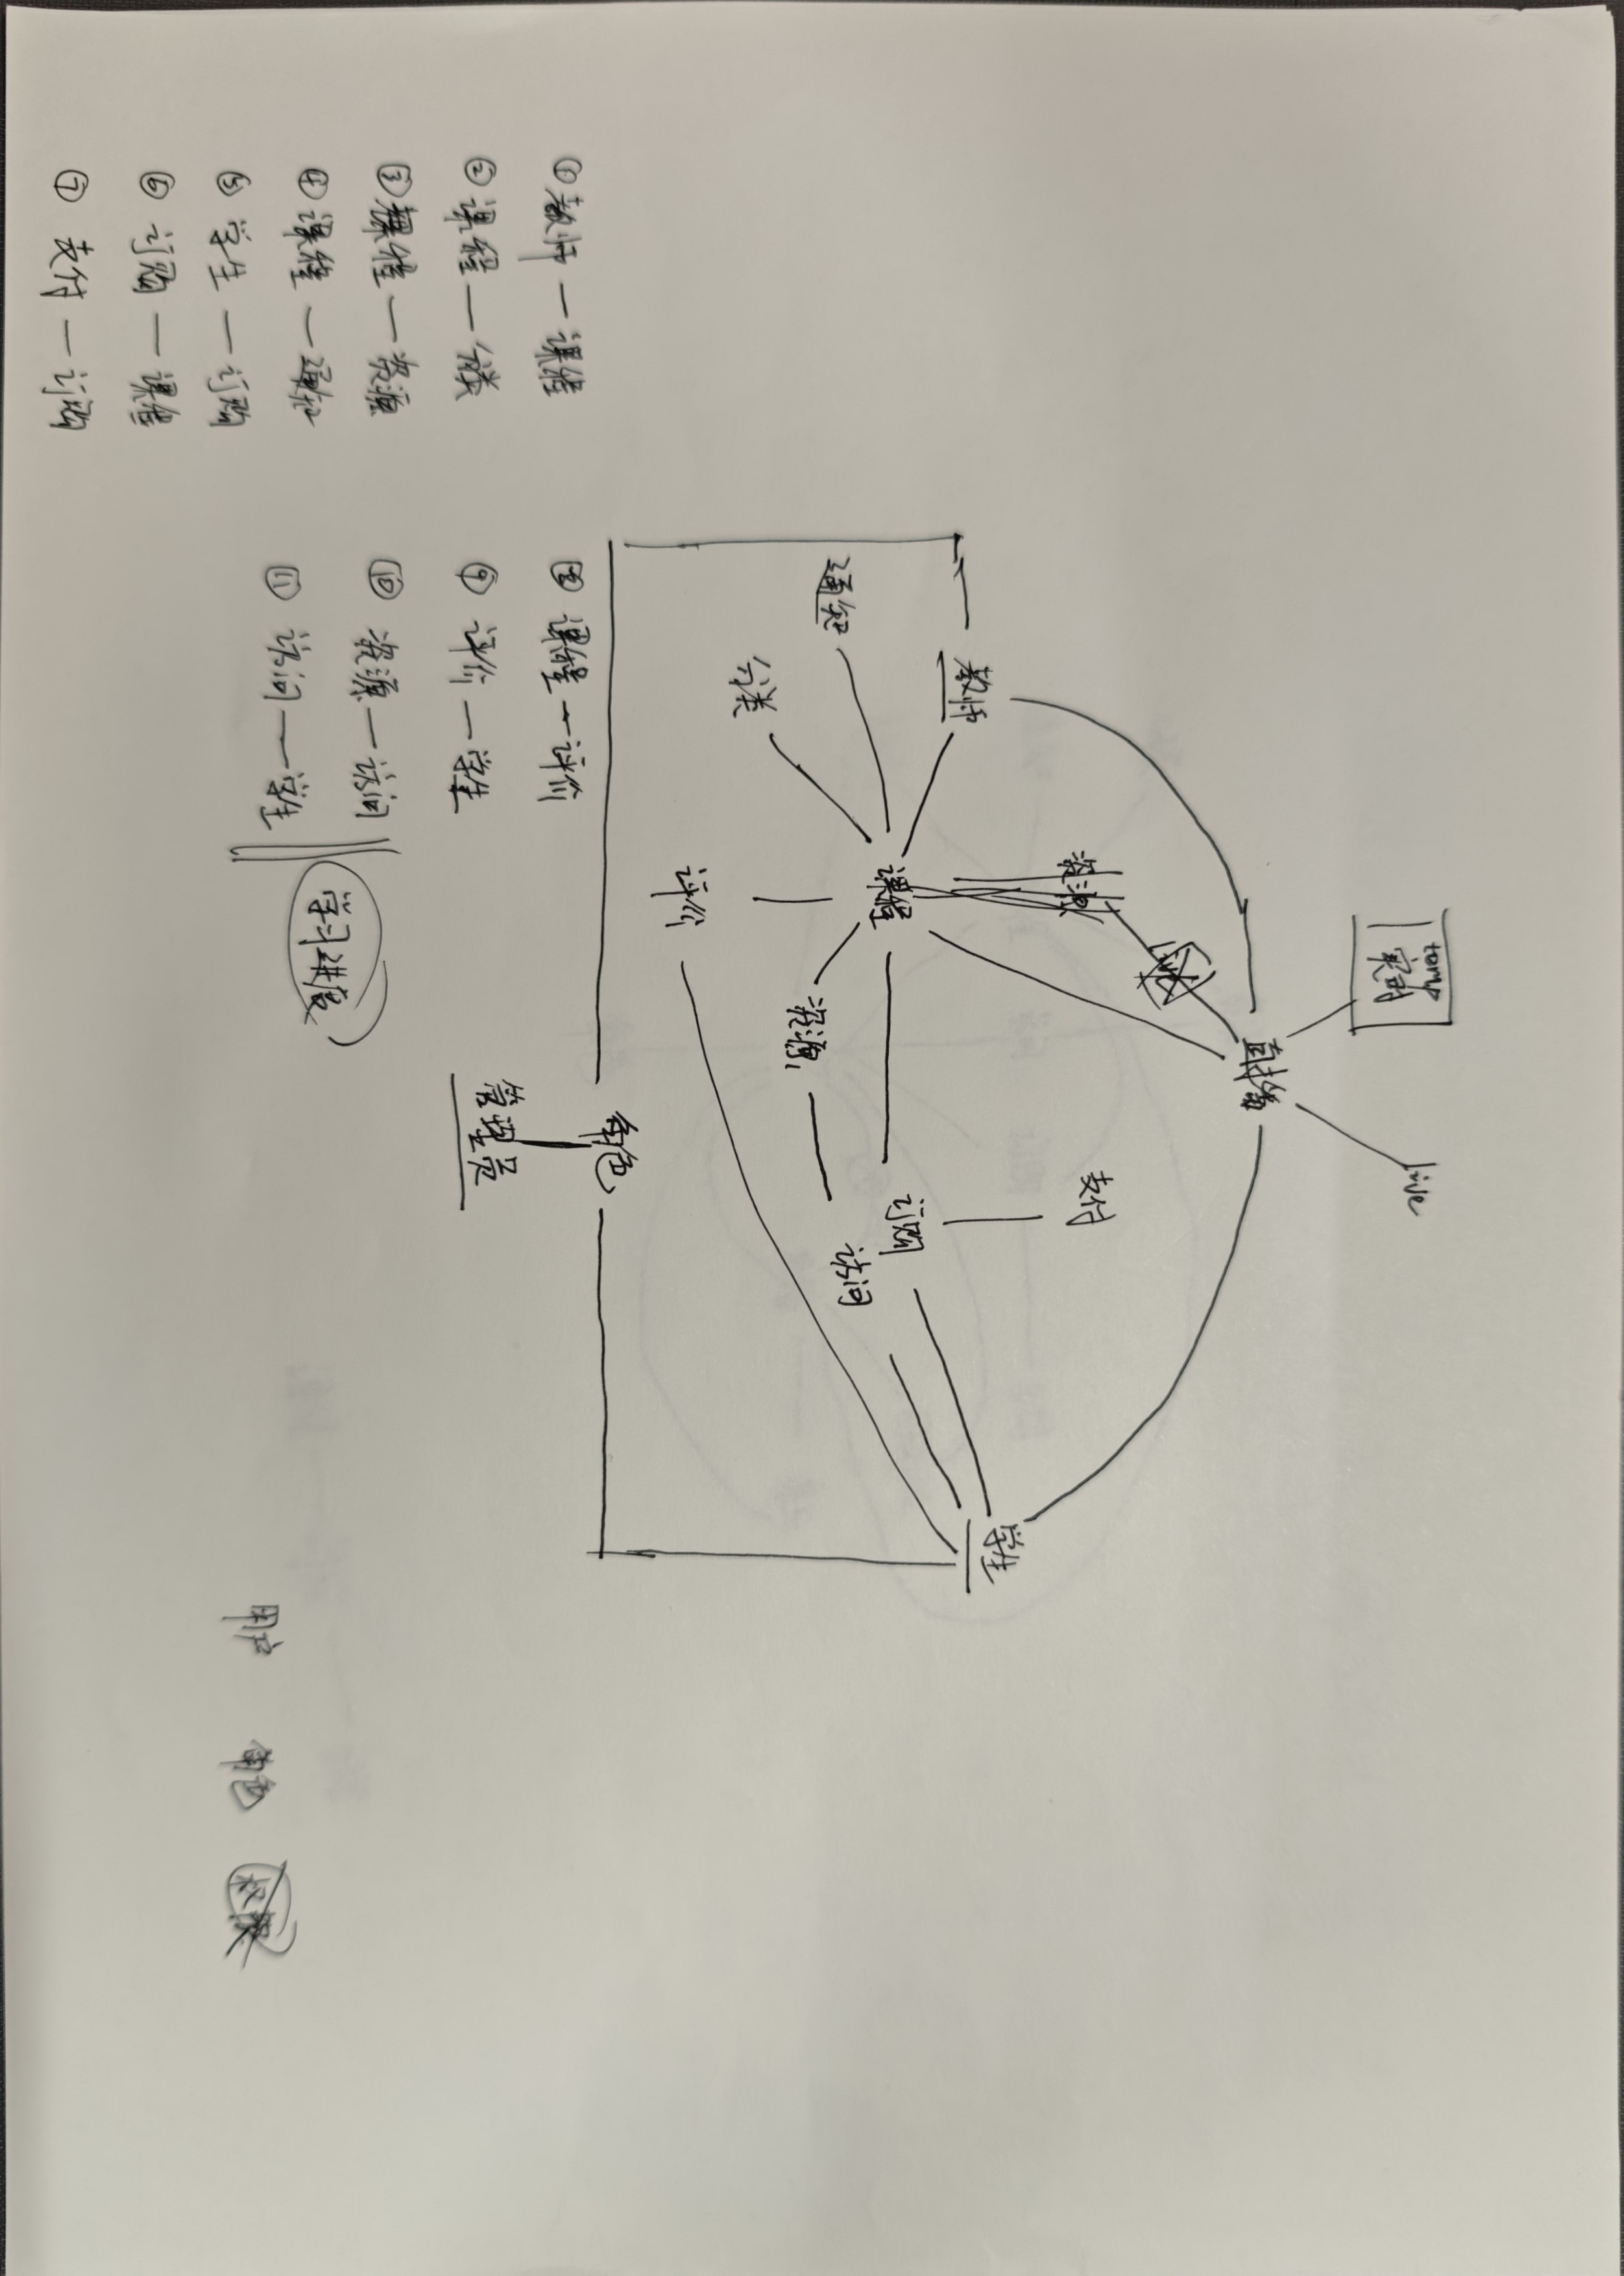 temp
实时
live
直播
资源
支付
教师
学生
课程
订购
通知
访问
资源
分类
评价
角色
管理员
① 教师 — 课程
② 课程 — 分类
③ 课程 — 资源
④ 课程 — 通知
⑤ 学生 — 订购
⑥ 订购 — 课程
⑦ 支付 — 订购
⑧ 课程 — 评价
⑨ 评价 — 学生
⑩ 资源 — 访问
⑪ 访问 — 学生
学习进度
用户 角色 权限